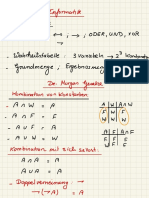 Informatik
→ ; ↔ ; ODER, UND, XOR
- Wahrheitstabelle : 3 Variablen → 2³ Kombinat
- Grundmenge ; Ergebnismenge
De Morgan Gesetze
Kombination mit Konstanten
- A ∧ W = A
- A ∨ W = W
- A ∧ F = F
- A ∨ F = A
A W A∧W
W W W
F W F
Kombination mit sich selbst
A ∧ A = A
A ∨ A = A
- Doppelverneinung
¬(¬A) = A